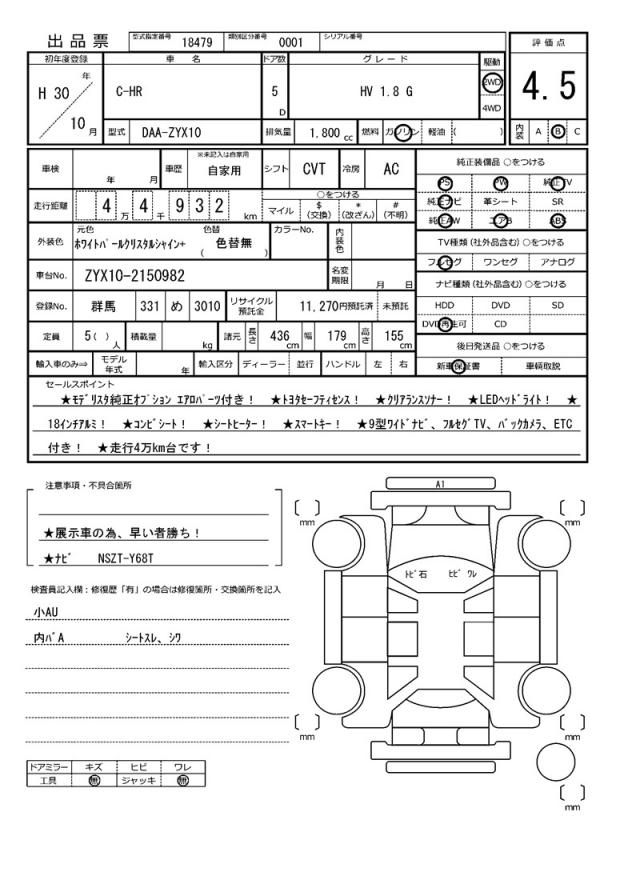 出品票 型式指定番号 18479 類別区分番号 0001 シリアル番号
評価点
4.5
内装 A B C
初年度登録 車名 ドア数 グレード 駆動
H 30 年 10 月 C-HR 5 D HV 1.8 G 2WD 4WD
型式 DAA-ZYX10 排気量 1.800 cc 燃料 ガソリン 軽油 ( )
車検 年 月 車歴 ※未記入は自家用 自家用 シフト CVT 冷房 AC
走行距離 4 万 4 千 9 3 2 km ○をつける
マイル $ (交換) * (改ざん) # (不明)
外装色 元色 ホワイトパールクリスタルシャイン+ 色替 ( 色替無 ) カラーNo. 内装色
車台No. ZYX10-2150982 名変期限 月 日
登録No. 群馬 331 め 3010 リサイクル預託金 11,270円預託済 未預託
定員 5( ) 人 積載量 kg 諸元 長さ 436 cm 幅 179 cm 高さ 155 cm
輸入車のみ⇒ モデル年式 年 輸入区分 ディーラー 並行 ハンドル 左 右
純正装備品 ○をつける
PS PW 純正TV
純正ナビ 革シート SR
純正AW エアB ABS
TV種類 (社外品含む) ○をつける
フルセグ ワンセグ アナログ
ナビ種類 (社外品含む) ○をつける
HDD DVD SD
DVD再生可 CD
後日発送品 ○をつける
新車保証書 車輌取説
セールスポイント
★モデリスタ純正オプション エアロパーツ付き! ★トヨタセーフティセンス! ★クリアランスソナー! ★LEDヘッドライト! ★
18インチアルミ! ★コンビシート! ★シートヒーター! ★スマートキー! ★9型ワイドナビ、フルセグTV、バックカメラ、ETC
付き! ★走行4万km台です!
注意事項・不具合箇所
★展示車の為、早い者勝ち!
★ナビ NSZT-Y68T
検査員記入欄:修復歴「有」の場合は修復箇所・交換箇所を記入
小AU
内バA シートスレ、シワ
ドアミラー キズ ヒビ ワレ
工具 無 ジャッキ 無
A1
トビ石 ヒビ ワレ
[ ] mm
[ ] mm
[ ] mm
[ ] mm
[ ] mm